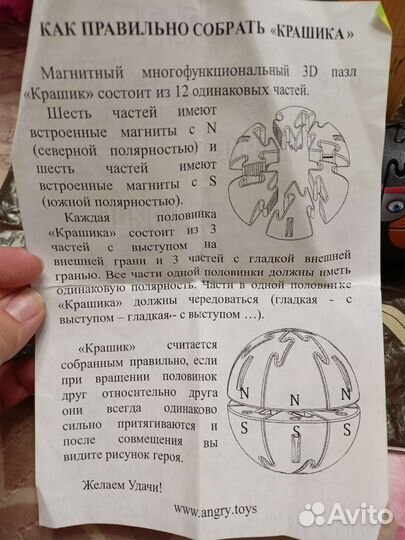 КАК ПРАВИЛЬНО СОБРАТЬ «КРАШИКА»
Магнитный многофункциональный 3D пазл
«Крашик» состоит из 12 одинаковых частей.
Шесть частей имеют
встроенные магниты с N
(северной полярностью) и
шесть частей имеют
встроенные магниты с S
(южной полярностью).
Каждая половинка
«Крашика» состоит из 3
частей с выступом на
внешней грани и 3 частей с гладкой внешней
гранью. Все части одной половинки должны иметь
одинаковую полярность. Части в одной половинке
«Крашика» должны чередоваться (гладкая - с
выступом – гладкая - с выступом …).
«Крашик» считается
собранным правильно, если
при вращении половинок
друг относительно друга
они всегда одинаково
сильно притягиваются и
после совмещения вы
видите рисунок героя.
N N N
S S S
Желаем Удачи!
www.angry.toys
Avito